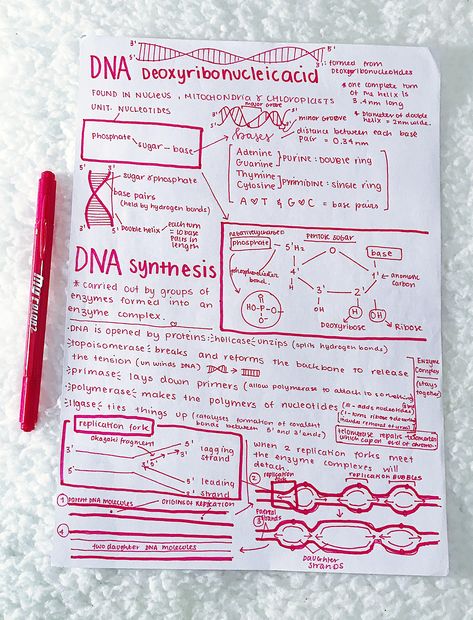 DNA Deoxyribonucleic acid
5' 3'
3' 5'
: formed from
deoxyribonucleotides
FOUND IN NUCLEUS, MITOCHONDRIA & CHLOROPLASTS
UNIT: NUCLEOTIDES
* one complete turn
of the helix is
3.4nm long
* Diameter of double
helix = 2nm wide.
major groove
minor groove
distance between each base
pair = 0.34nm
phosphate
sugar - base
bases
Adenine
Guanine
purine: double ring
Thymine
Cytosine
pyrimidine: single ring
A ♡ T & G ♡ C = base pairs
5' 3'
sugar & phosphate
base pairs
(held by hydrogen bonds)
3' 5'
Double helix
each turn
= 10 base
pairs in
length
negatively charged
phosphate
pentose sugar
base
5' H2
O
4'
1'
anomeric
carbon
3' 2'
OH H OH
Deoxyribose
Ribose
phosphodiester
bond.
HO-P-O
DNA synthesis
* carried out by groups of
enzymes formed into an
enzyme complex.
· DNA is opened by proteins: helicase: unzips (splits hydrogen bonds)
· topoisomerase: breaks and reforms the backbone to release
the tension (un winds DNA)
· primase: lays down primers (allow polymerase to attach to something)
· polymerase: makes the polymers of nucleotides
· ligase: ties things up (catalyses formation of covalent
bonds between 5' and 3' ends)
Enzyme
complex
(stays
together)
replication fork
okazaki fragment
lagging
strand
leading
strand
when 2 replication forks meet
the enzyme complexes will
detach.
① parent DNA molecules
ORIGINS OF REPLICATION
② replication
fork
REPLICATION BUBBLES
③
Parental
strands
DAUGHTER
STRANDS
④
two daughter DNA molecules